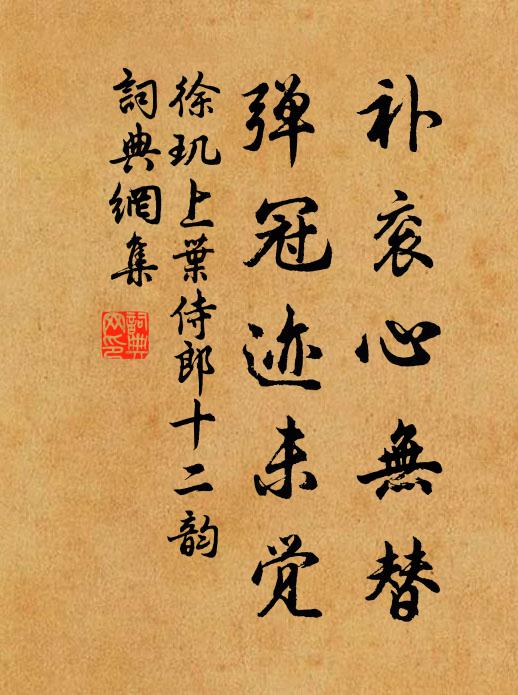 补衮心無替
弹冠迹未觉
徐玑上葉侍郎十二韵
詞典網集